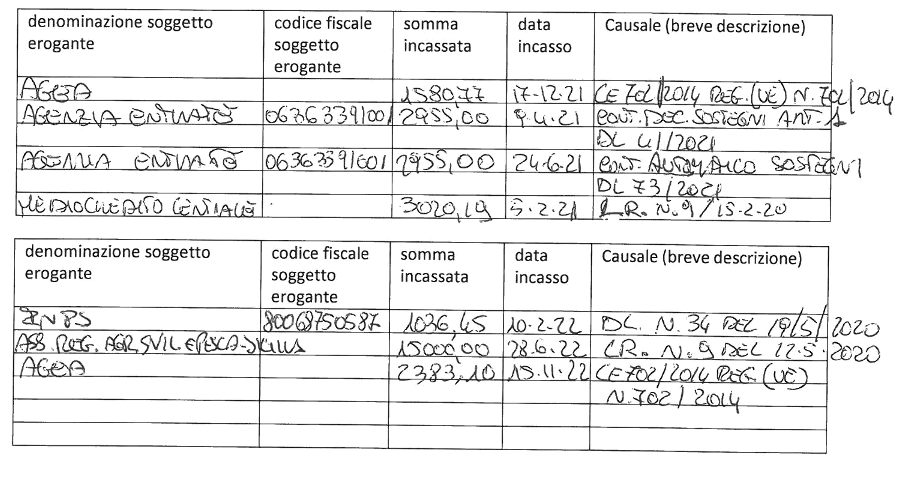 denominazione soggetto erogante codice fiscale soggetto erogante somma incassata data incasso Causale (breve descrizione)
AGEA 1580,77 17-12-21 CE 702/2014 REG.(UE) N.702/2014
AGENZIA ENTRATE 06363391001 2955,00 9.4.21 CONT. DEC. SOSTEGNI ART.1
DL 41/2021
AGENZIA ENTRATE 06363391001 2955,00 24.6.21 CONT. AUTOMATICO SOSTEGNI
DL 73/2021
MEDIOCREDITO CENTRALE 3020,19 5.2.21 L.R. N.9/15.2.20
denominazione soggetto erogante codice fiscale soggetto erogante somma incassata data incasso Causale (breve descrizione)
INPS 80068750587 1036,45 10.2.22 DL. N. 34 DEL 19/5/2020
ASS. REG. AGR. SVIL E PESCA 15000,00 28.6.22 L.R. N.9 DEL 12.5.2020
AGEA 2383,10 15.11.22 CE 702/2014 REG.(UE)
N.702/2014